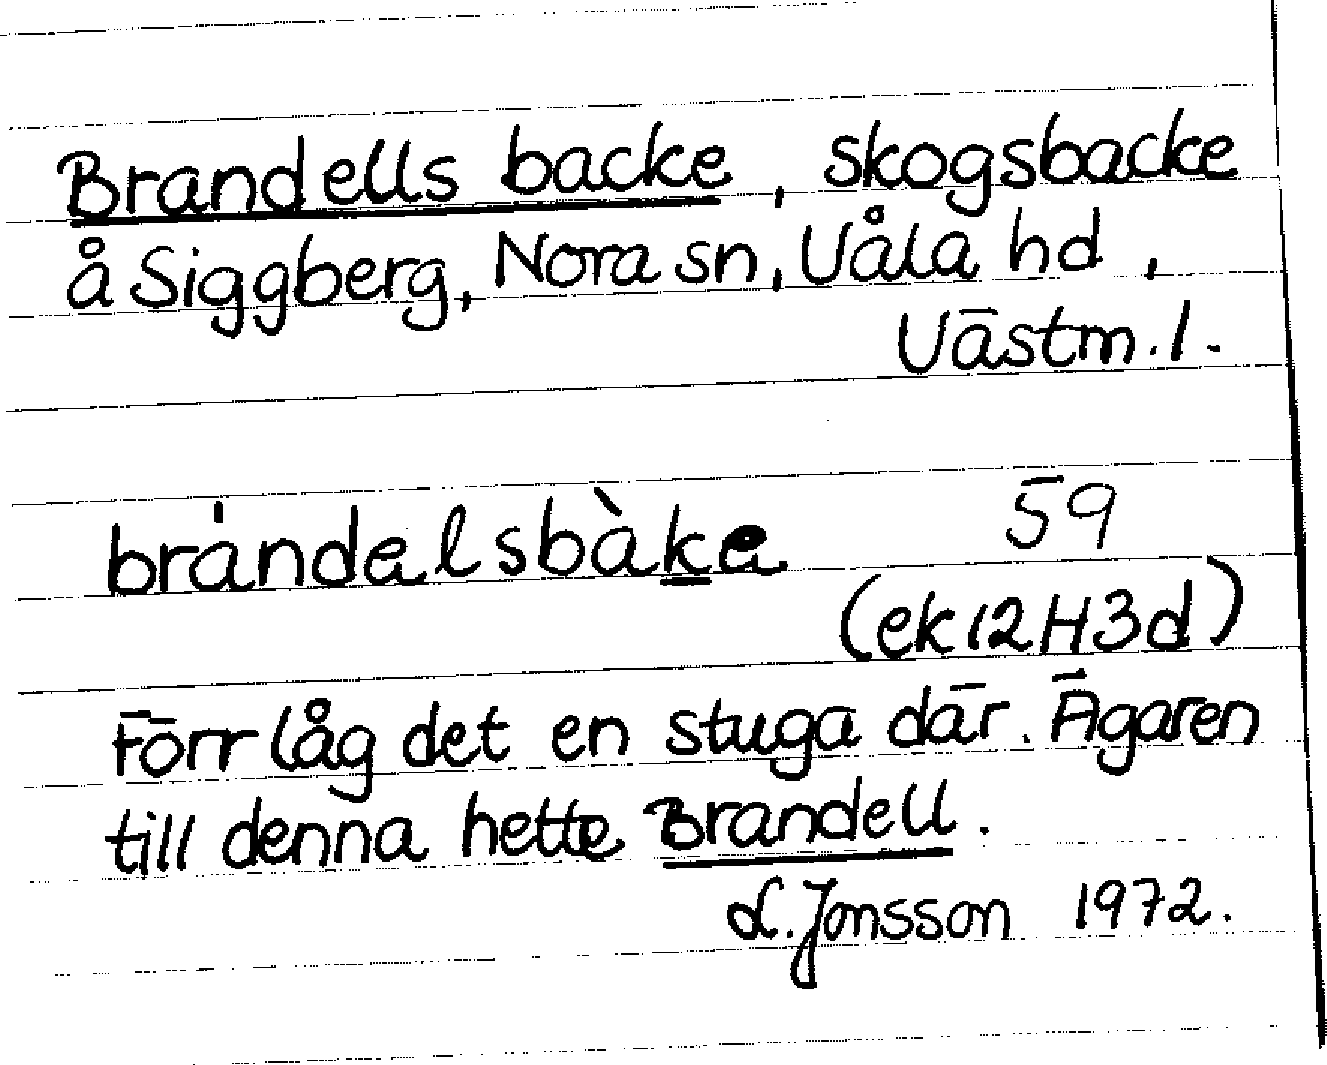 Brandells backe, skogsbacke
å Siggberg, Nora sn, Våla hd,
Västm. l.
bràndalsbàka 59
(ek 12H3d)
Förr låg det en stuga där. Ägaren
till denna hette Brandell.
L. Jonsson 1972.